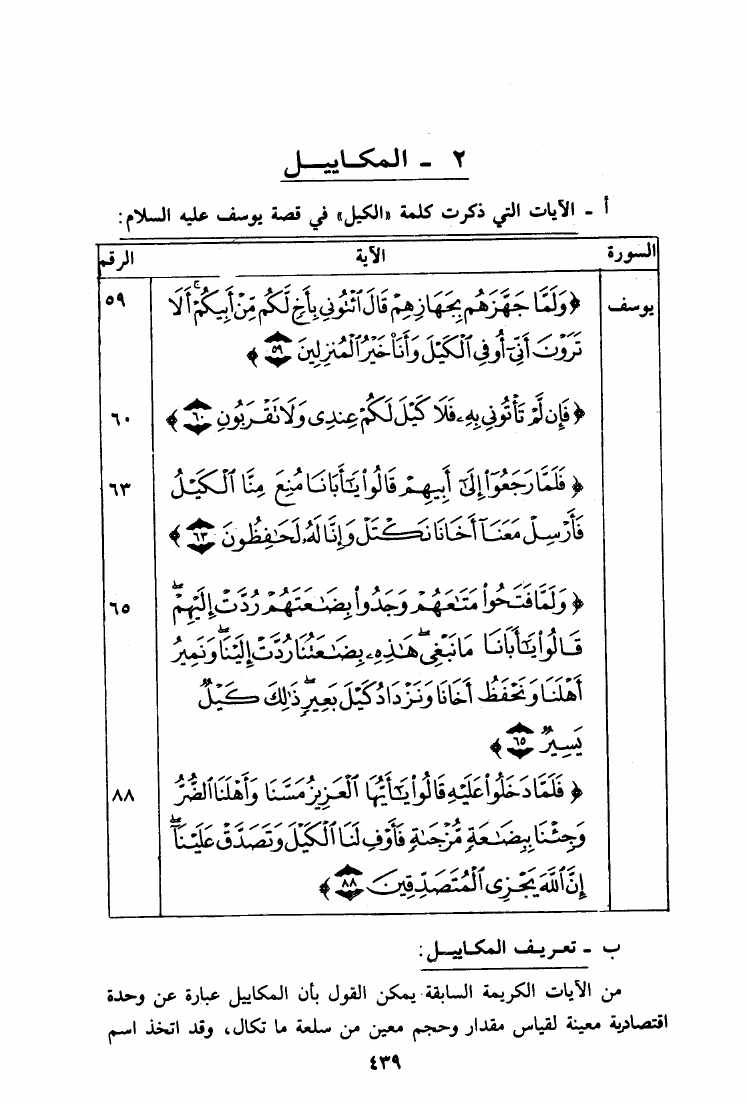 ٢ - المكاييل
أ - الآيات التي ذكرت كلمة «الكيل» في قصة يوسف عليه السلام:
السورة الآية الرقم
يوسف ﴿وَلَمَّا جَهَّزَهُم بِجَهَازِهِمْ قَالَ ٱئْتُونِى بِأَخٍ لَّكُم مِّنْ أَبِيكُمْ ۚ أَلَا ٥٩
تَرَوْنَ أَنِّىٓ أُوفِى ٱلْكَيْلَ وَأَنَا۠ خَيْرُ ٱلْمُنزِلِينَ ٥٩﴾
﴿فَإِن لَّمْ تَأْتُونِى بِهِۦ فَلَا كَيْلَ لَكُمْ عِندِى وَلَا تَقْرَبُونِ ٦٠﴾ ٦٠
﴿فَلَمَّا رَجَعُوٓا۟ إِلَىٰٓ أَبِيهِمْ قَالُوا۟ يَـٰٓأَبَانَا مُنِعَ مِنَّا ٱلْكَيْلُ ٦٣
فَأَرْسِلْ مَعَنَآ أَخَانَا نَكْتَلْ وَإِنَّا لَهُۥ لَحَـٰفِظُونَ ٦٣﴾
﴿وَلَمَّا فَتَحُوا۟ مَتَـٰعَهُمْ وَجَدُوا۟ بِضَـٰعَتَهُمْ رُدَّتْ إِلَيْهِمْ ۖ ٦٥
قَالُوا۟ يَـٰٓأَبَانَا مَا نَبْغِى ۖ هَـٰذِهِۦ بِضَـٰعَتُنَا رُدَّتْ إِلَيْنَا ۖ وَنَمِيرُ
أَهْلَنَا وَنَحْفَظُ أَخَانَا وَنَزْدَادُ كَيْلَ بَعِيرٍ ۖ ذَٰلِكَ كَيْلٌ
يَسِيرٌ ٦٥﴾
﴿فَلَمَّا دَخَلُوا۟ عَلَيْهِ قَالُوا۟ يَـٰٓأَيُّهَا ٱلْعَزِيزُ مَسَّنَا وَأَهْلَنَا ٱلضُّرُّ ٨٨
وَجِئْنَا بِبِضَـٰعَةٍ مُّزْجَىٰةٍ فَأَوْفِ لَنَا ٱلْكَيْلَ وَتَصَدَّقْ عَلَيْنَآ ۖ
إِنَّ ٱللَّهَ يَجْزِى ٱلْمُتَصَدِّقِينَ ٨٨﴾
ب - تعريف المكاييل:
من الآيات الكريمة السابقة يمكن القول بأن المكاييل عبارة عن وحدة
اقتصادية معينة لقياس مقدار وحجم معين من سلعة ما تكال، وقد اتخذ اسم
٤٣٩